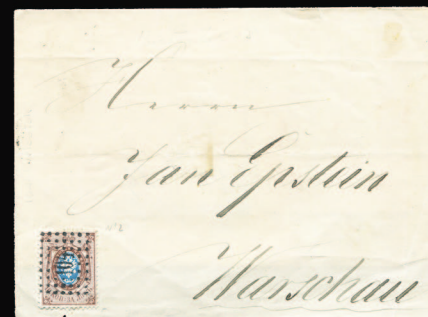 Herrn
Jan Epstein
Warschau